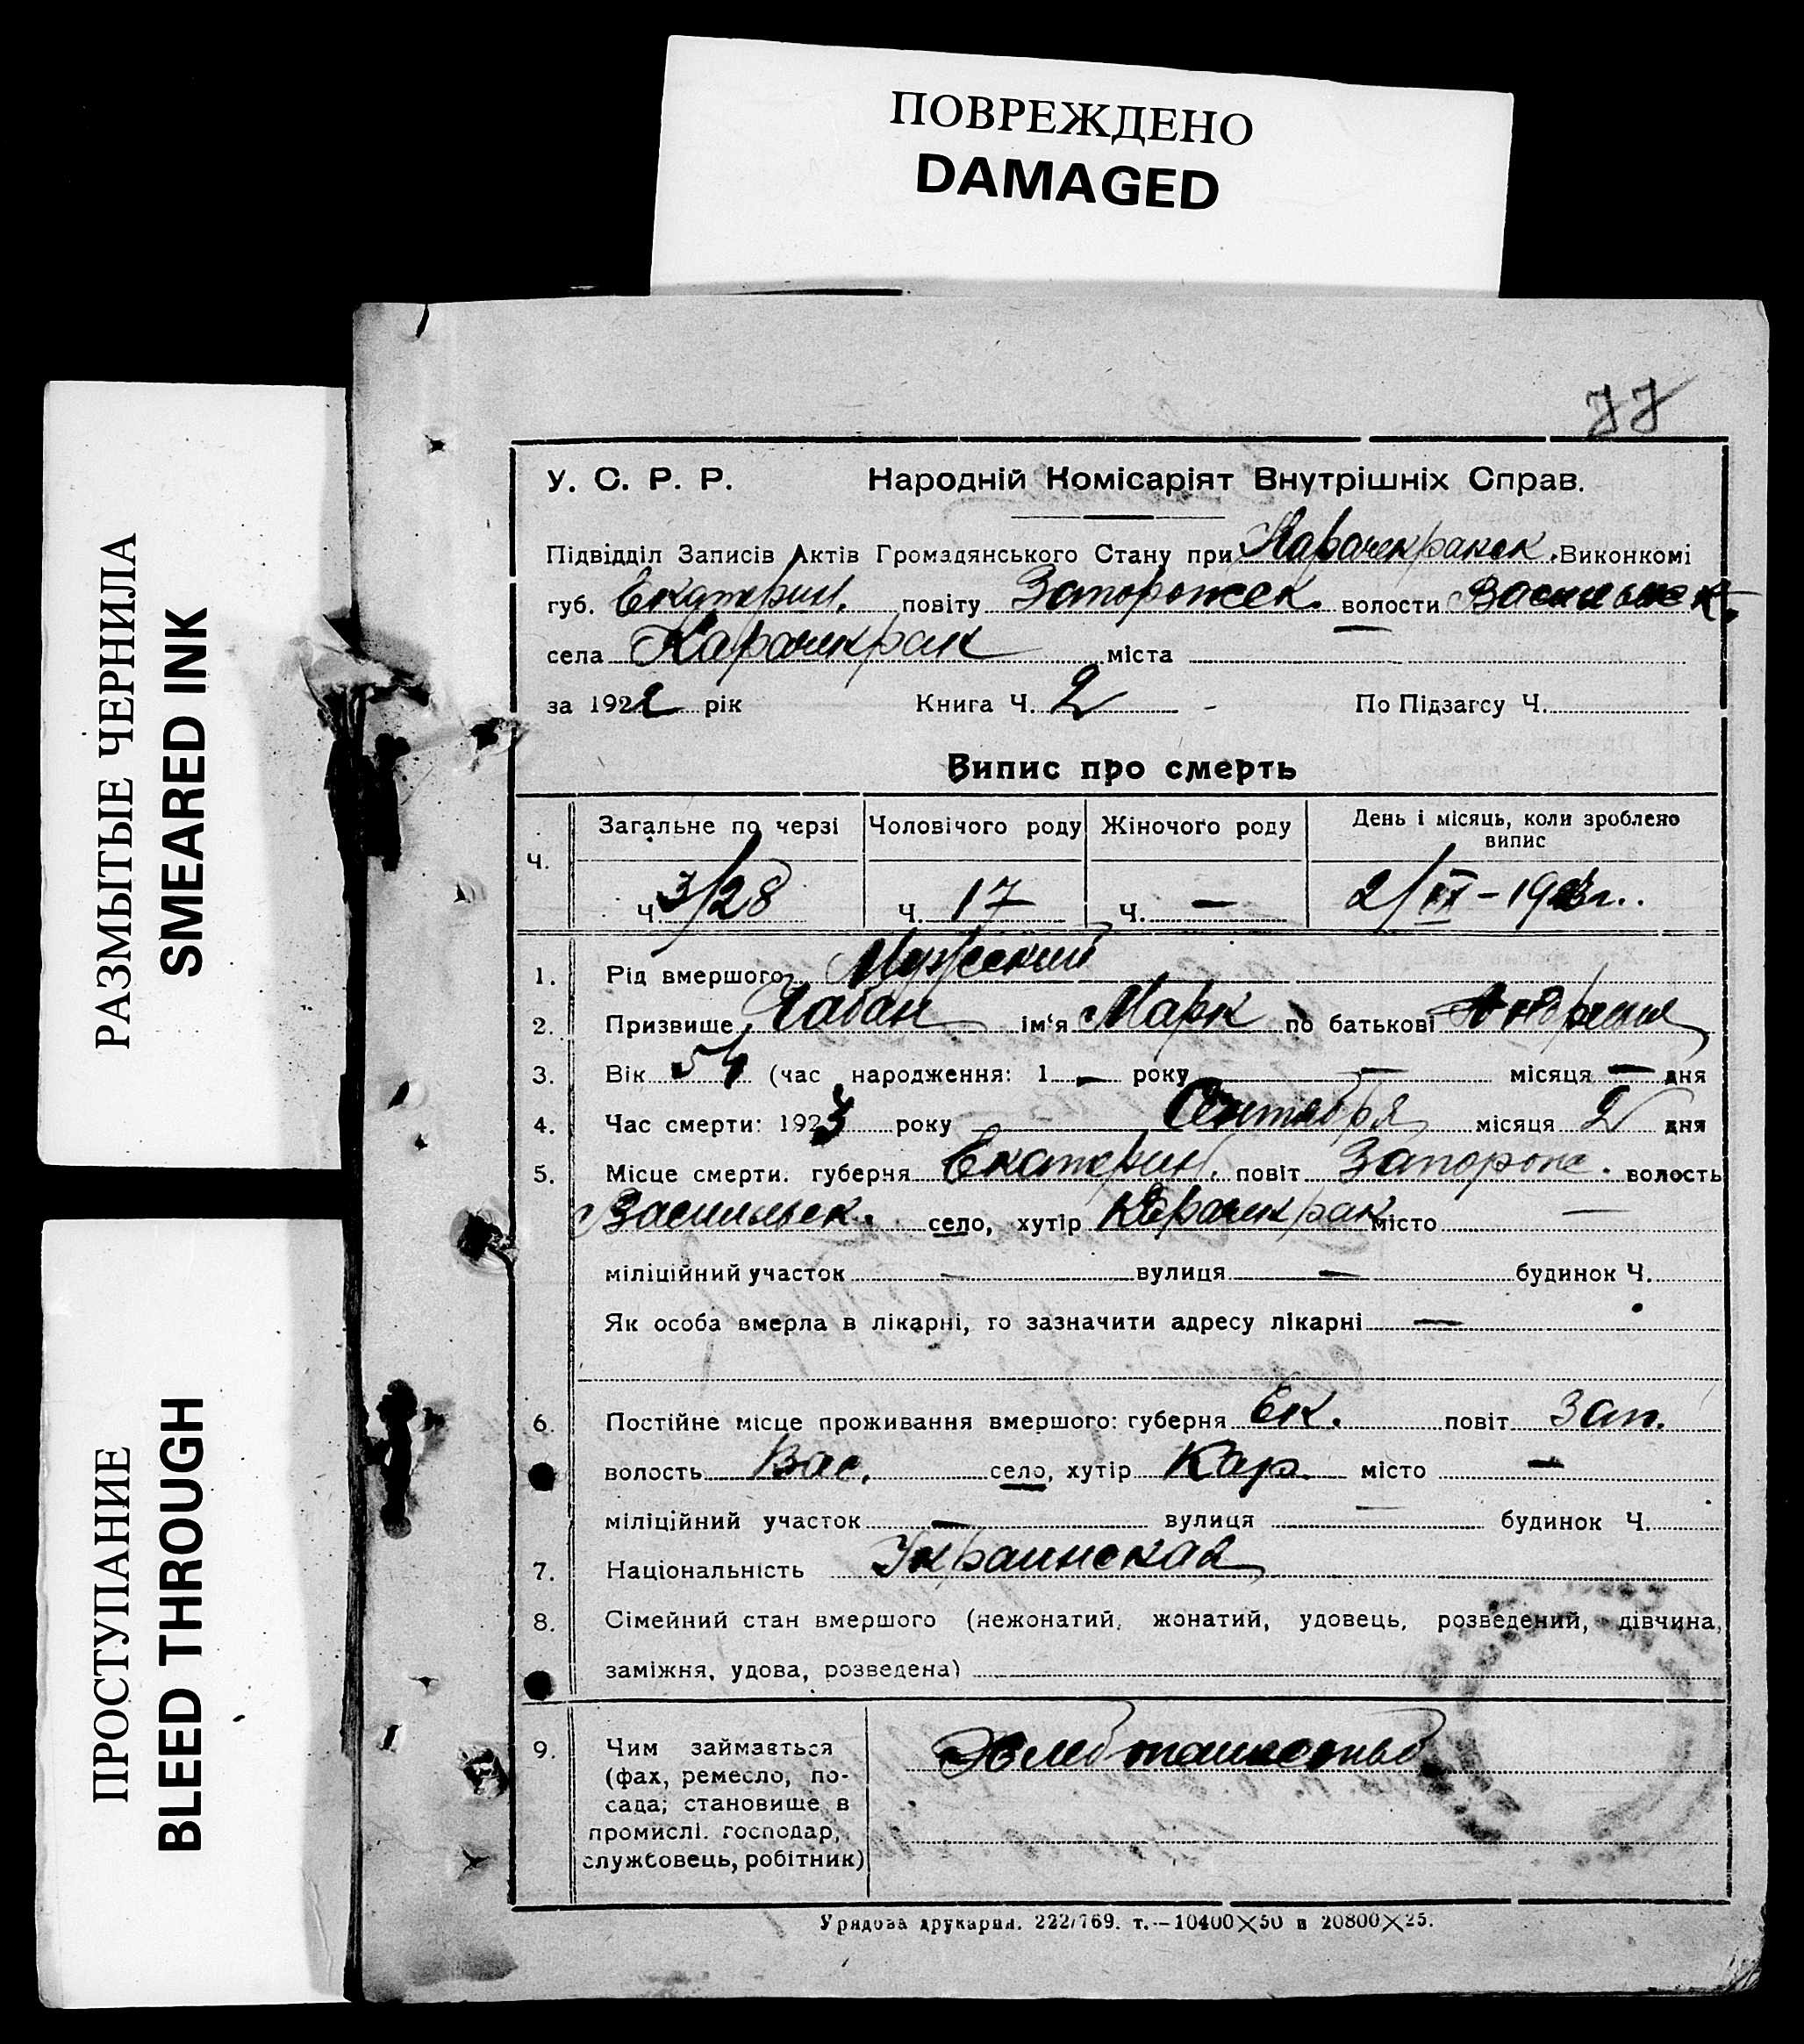 ПОВРЕЖДЕНО
DAMAGED
РАЗМЫТЫЕ ЧЕРНИЛА
SMEARED INK
ПРОСТУПАНИЕ
BLEED THROUGH
77
У. С. Р. Р. Народній Комісаріят Внутрішніх Справ.
Підвідділ Записів Актів Громадянського Стану при Карачекракск. Виконкомі
губ. Екатерин. повіту Запорожск. волости Васильевск.
села Карачекрак міста
за 1922 рік Книга Ч. 2 По Підзагсу Ч.
Випис про смерть
Ч. Загальне по черзі Чоловічого роду Жіночого роду День і місяць, коли зроблено випис
Ч. 3/28 Ч. 17 Ч. — 2/IX - 1923 г.
1. Рід вмершого Мужеский
2. Призвище Чабан ім‘я Марк по батькові Андреев
3. Вік 54 (час народження: 1 — року — місяця — дня
4. Час смерти: 1923 року Сентября місяця 2 дня
5. Місце смерти. губерня Екатерин. повіт Запорож. волость
Васильевск. село, хутір Карачекрак місто —
міліційний участок — вулиця — будинок Ч.
Як особа вмерла в лікарні, то зазначити адресу лікарні —
6. Постійне місце проживання вмершого: губерня Ек. повіт Зап.
волость Вас. село, хутір Кар. місто —
міліційний участок — вулиця — будинок Ч.
7. Національність Украинская
8. Сімейний стан вмершого (нежонатий, жонатий, удовець, розведений, дівчина,
заміжня, удова, розведена)
9. Чим займається Хлебопашество
(фах, ремесло, по-
сада; становище в
промислі. господар,
службовець, робітник)
Урядова друкарня. 222/769. т.—10400×50 и 20800×25.